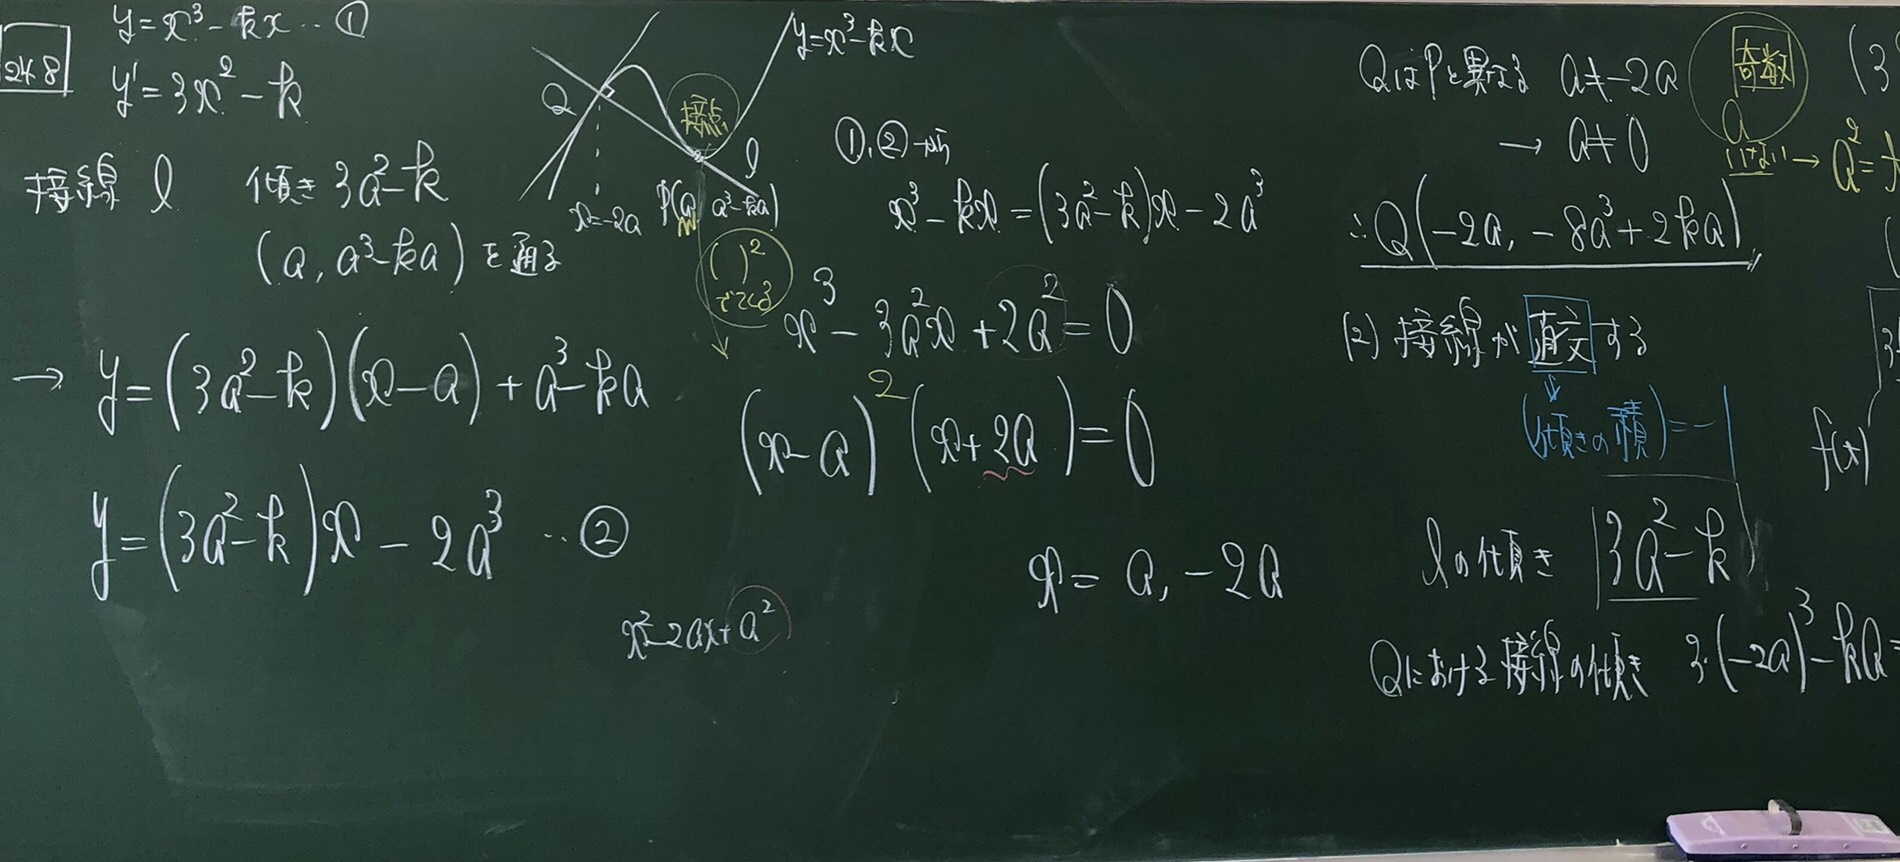 248
y=x³-kx … ①
y'=3x²-k
接線 l 傾き 3a²-k
(a, a³-ka) を通る
→ y=(3a²-k)(x-a)+a³-ka
y=(3a²-k)x-2a³ … ②
y=x³-kx
Q
接点
l
x=-2a
P(a, a³-ka)
( )²
でてくる
①,②より
x³-kx=(3a²-k)x-2a³
x³-3a²x+2a²=0
(x-a)²(x+2a)=0
x=a, -2a
x²-2ax+a²
QはPと異なる a≠-2a
→ a≠0
奇数
a
はない → a²=
∴Q(-2a, -8a³+2ka)
(2) 接線が直交する
↓
(傾きの積)=-1
lの傾き 3a²-k
Qにおける接線の傾き 3·(-2a)³-ka=
(3
f(x)